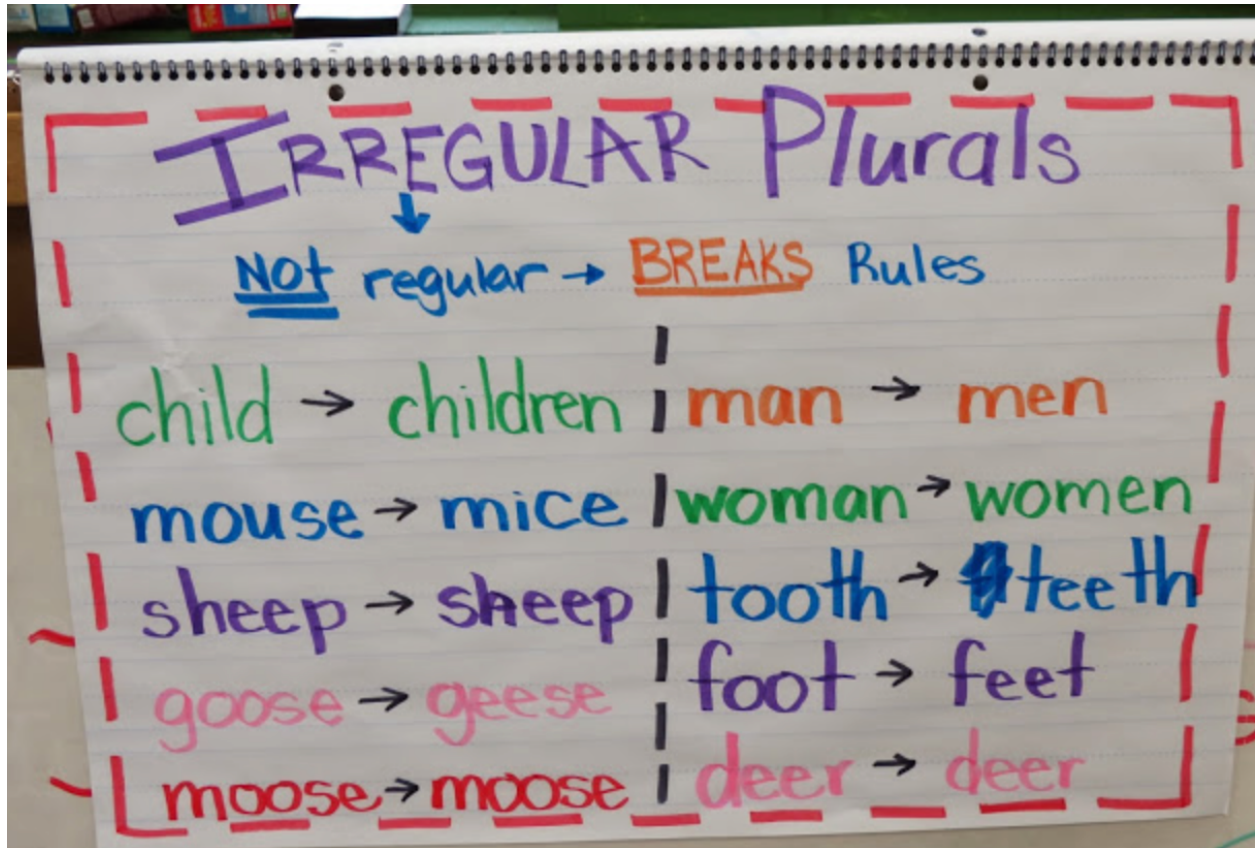 IRREGULAR Plurals
↓
NOT regular → BREAKS Rules
child → children
mouse → mice
sheep → sheep
goose → geese
moose → moose
man → men
woman → women
tooth → teeth
foot → feet
deer → deer